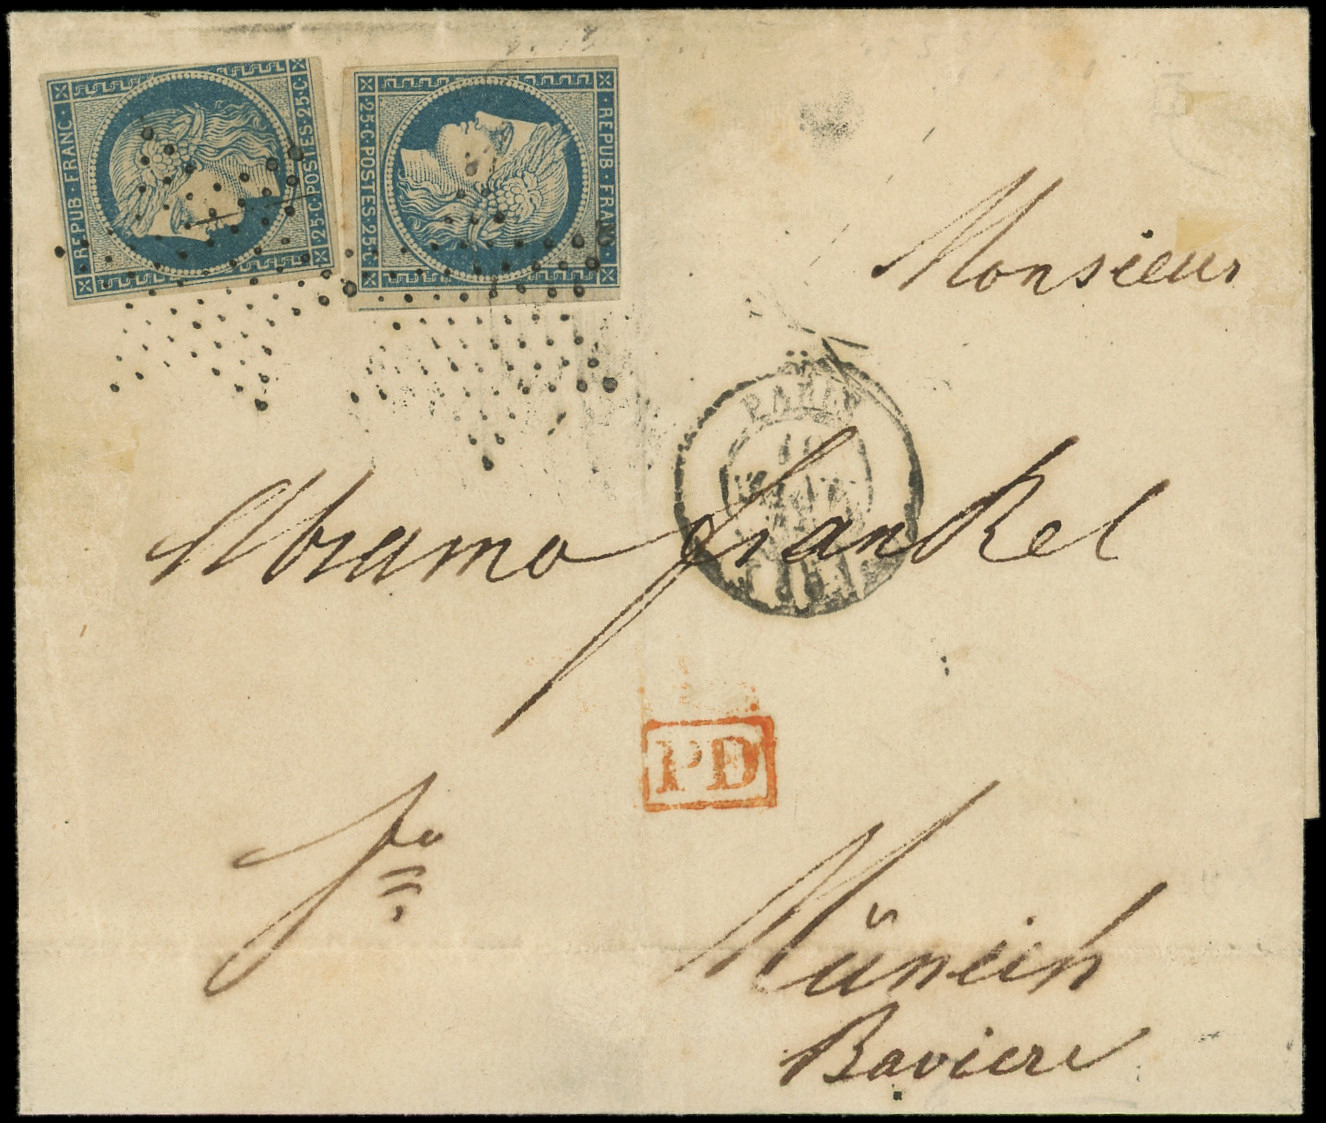 REPUB · FRANC ·
25 · C · POSTES · 25 · C
REPUB · FRANC
25 · C · POSTES · 25 · C
Monsieur
PARIS
Abramo Frankel
PD
fo
Münich
Baviere